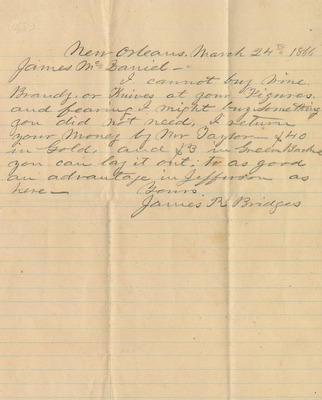 New Orleans, March 24th 1866
James McDaniel -
I cannot buy Wine
Brandy or Knives at your Figures.
and fearing I might buy something
you did not need, I return
your Money by Mr Taylor $40
in Gold, and $3 in Green Backs
you can lay it out, to as good
an advantage in Jefferson as
here —
Yours
James R Bridges